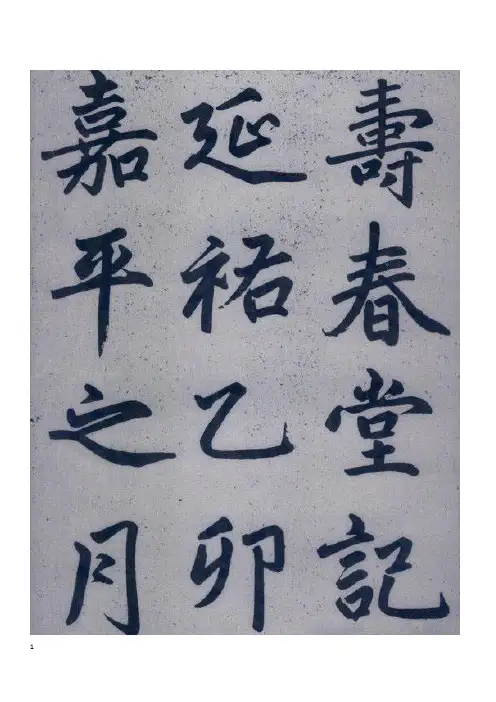 壽春堂記
延祐乙卯
嘉平之月
1